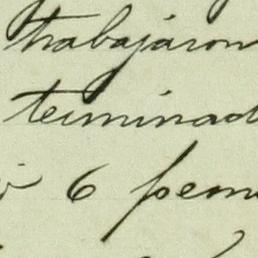 trabajaron
terminad
6 peon